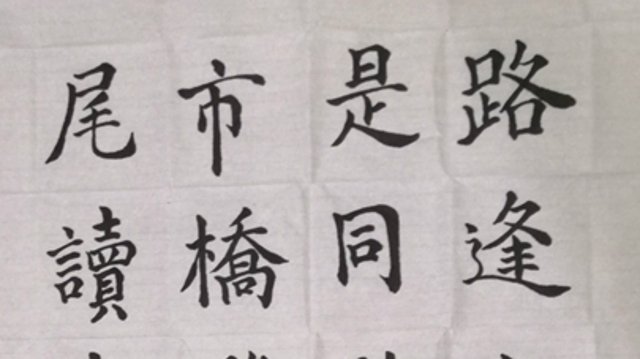 路逢
是同
市橋
尾讀